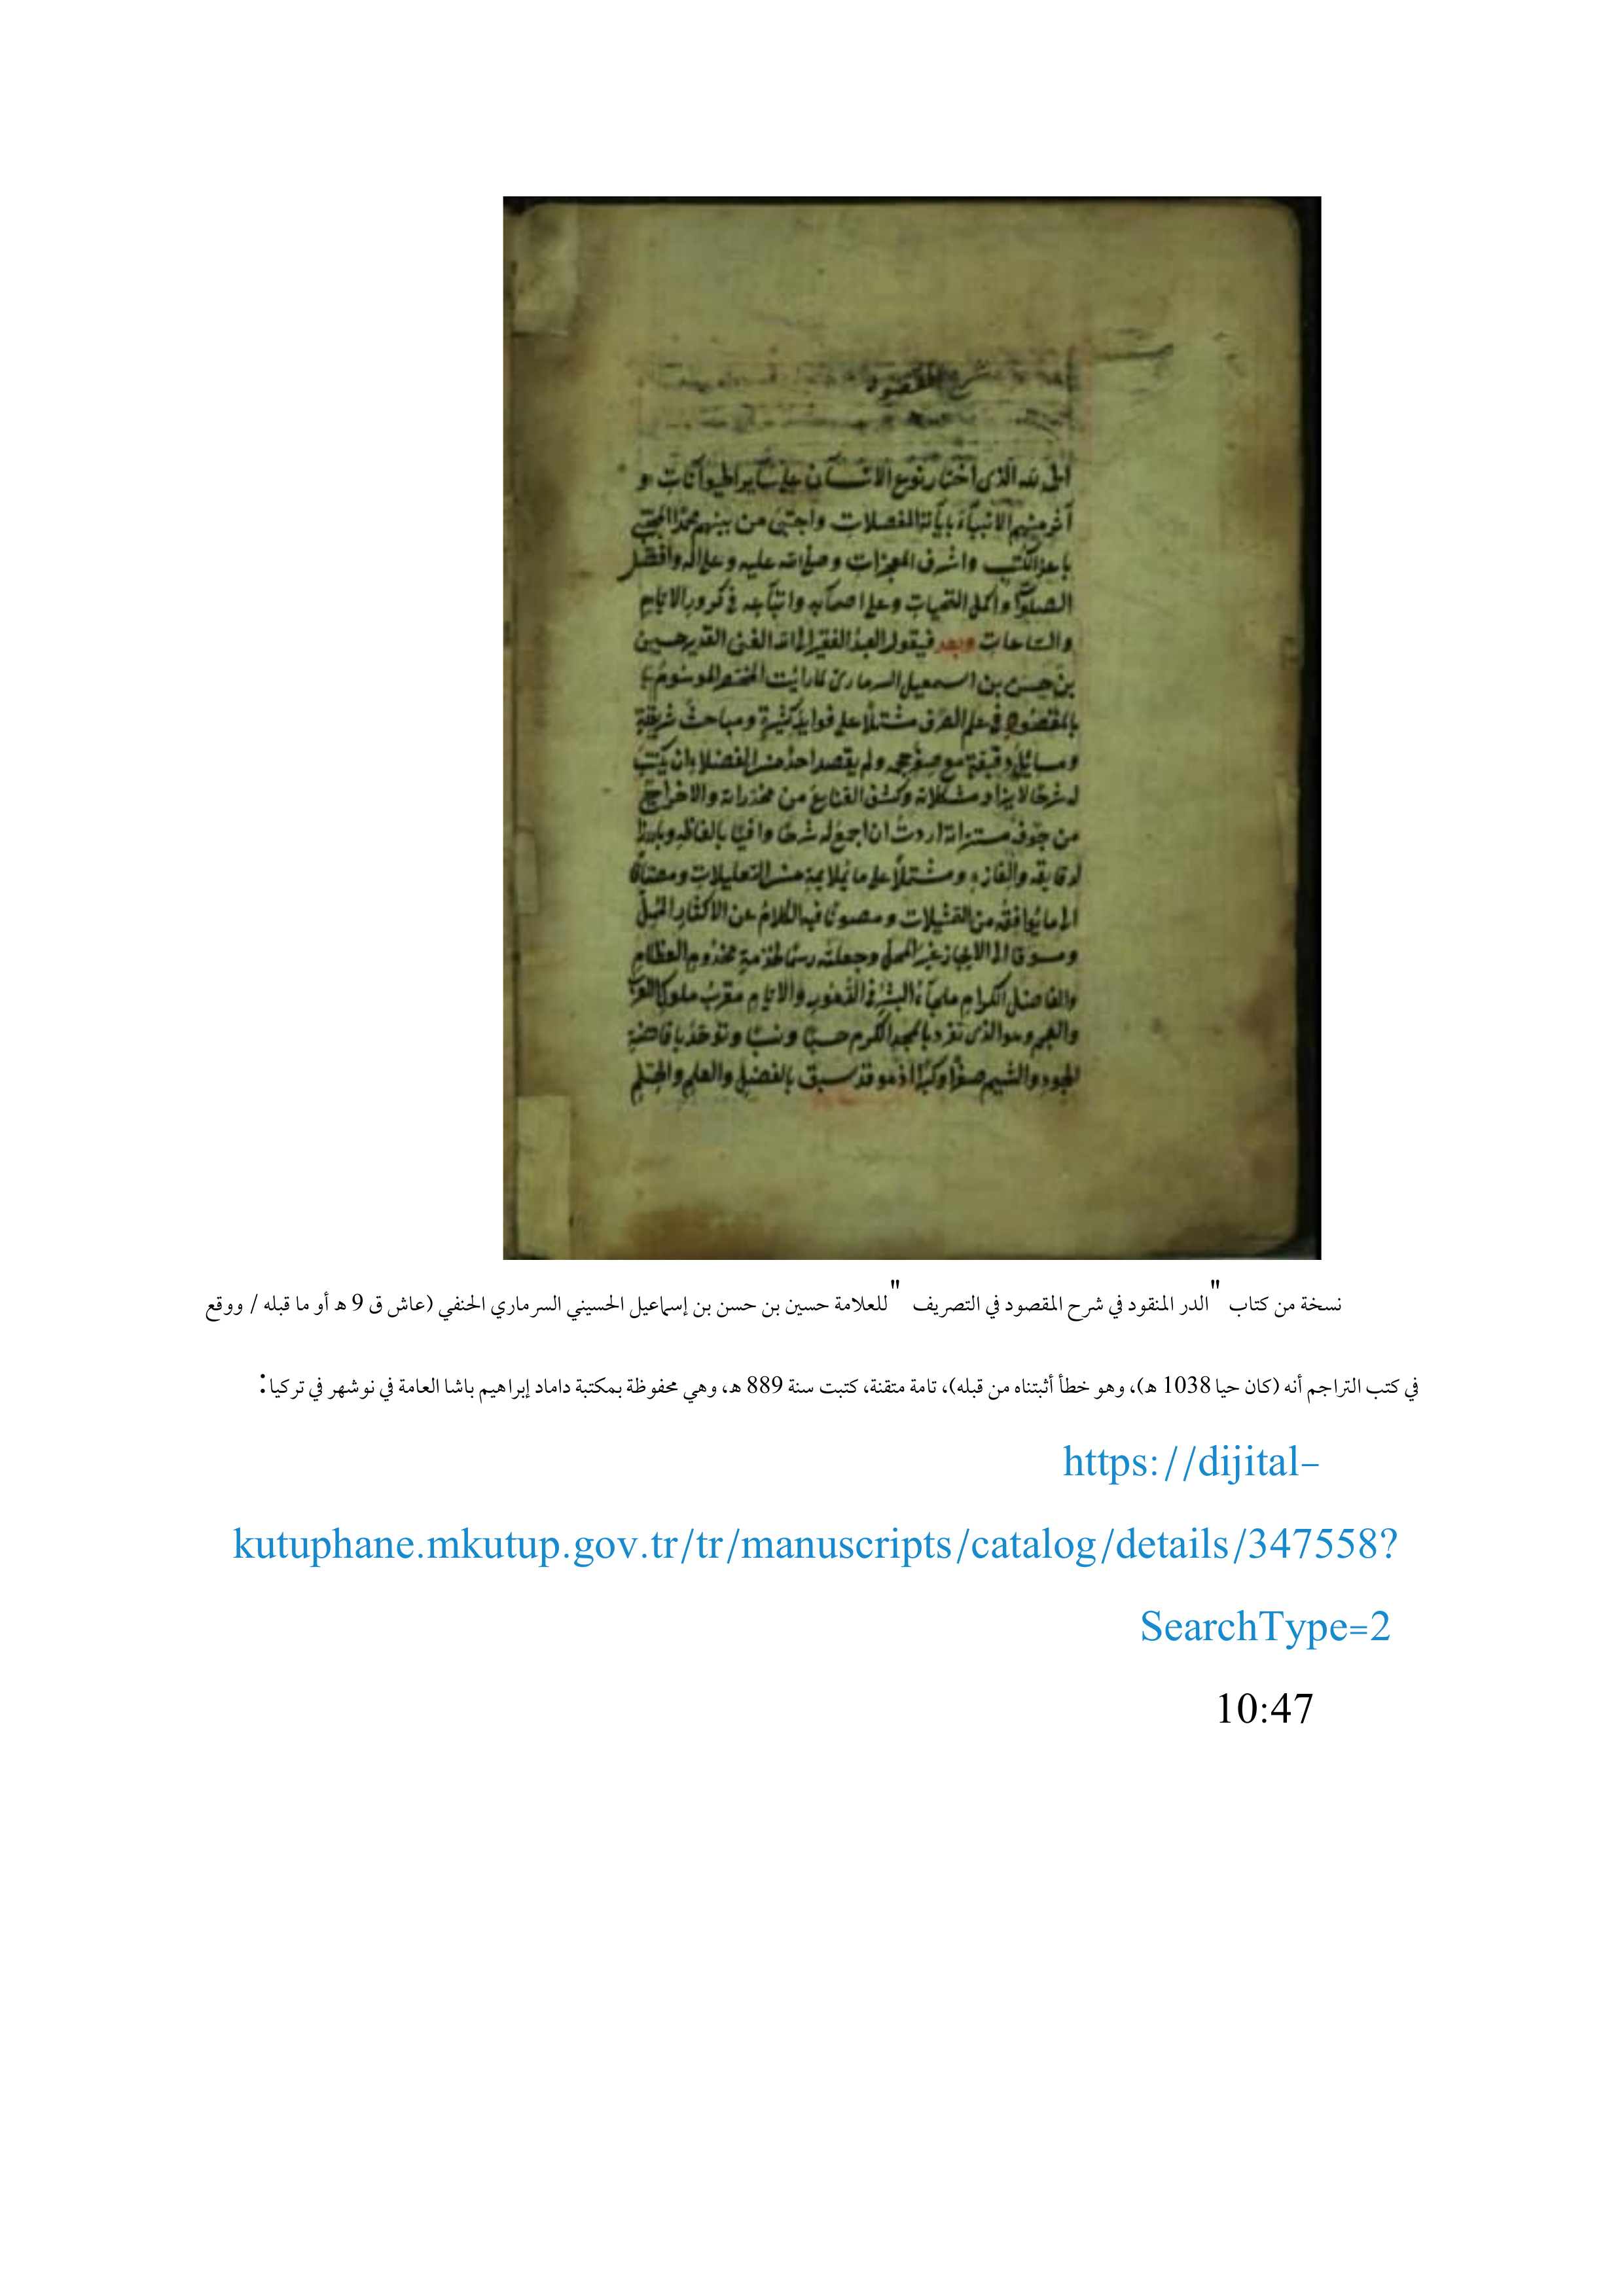 شرح المقصود
الحمد لله الذى اختار نوع الانسان على ساير الحيوانات و
الانبياء بايات المفصلات واجتبى من بينهم محمدا المجتبى
باعز الكتب واشرف المعجزات وصلى الله عليه وعلى اله وافضل
الصلوات واكمل التحيات وعلى اصحابه واتباعه فى كرور الايام
والساعات وبعد فيقول العبد الفقير الى الله الغنى القدير حسين
بن حسن بن اسمعيل السرمارى لما رايت المختصر الموسوم
بالمقصود فى علم الصرف مشتملا على فوايد كثيرة ومباحث شريفة
ومسائل دقيقة مع صغر حجمه ولم يقصد احد من الفضلاء ان يكتب
له شرحا مشكلاته وكشف القناع من مخدراته والاخراج
من جوف اردت ان اجمع له شرحا وافيا بالفاظه
لدقايقه والغازه ومشتملا على ما يلايمه من التعليلات
الى ما يوافقه من التمثيلات ومصونا فيه الكلام عن الاكثار الممل
الى الايجاز غير المخل وجعلته لخدمة مخدوم العظام
والفاضل الكرام ملجاء البشر فى الدهور والايام مقرب ملوك العرب
والعجم وهو الذى تفرد بالمجد الكرم حسبا ونسبا وتوحد بافاضة
الجود والشيم صغرا وكبرا اذ هو قد سبق بالفضل والعلم والحلم
نسخة من كتاب "الدر المنقود في شرح المقصود في التصريف" للعلامة حسين بن حسن بن إسماعيل الحسيني السرماري الحنفي (عاش ق 9 هـ أو ما قبله / ووقع
في كتب التراجم أنه (كان حيا 1038 هـ)، وهو خطأ أثبتناه من قبله)، تامة متقنة، كتبت سنة 889 هـ، وهي محفوظة بمكتبة داماد إبراهيم باشا العامة في نوشهر في تركيا:
https://dijital-
kutuphane.mkutup.gov.tr/tr/manuscripts/catalog/details/347558?
SearchType=2
10:47